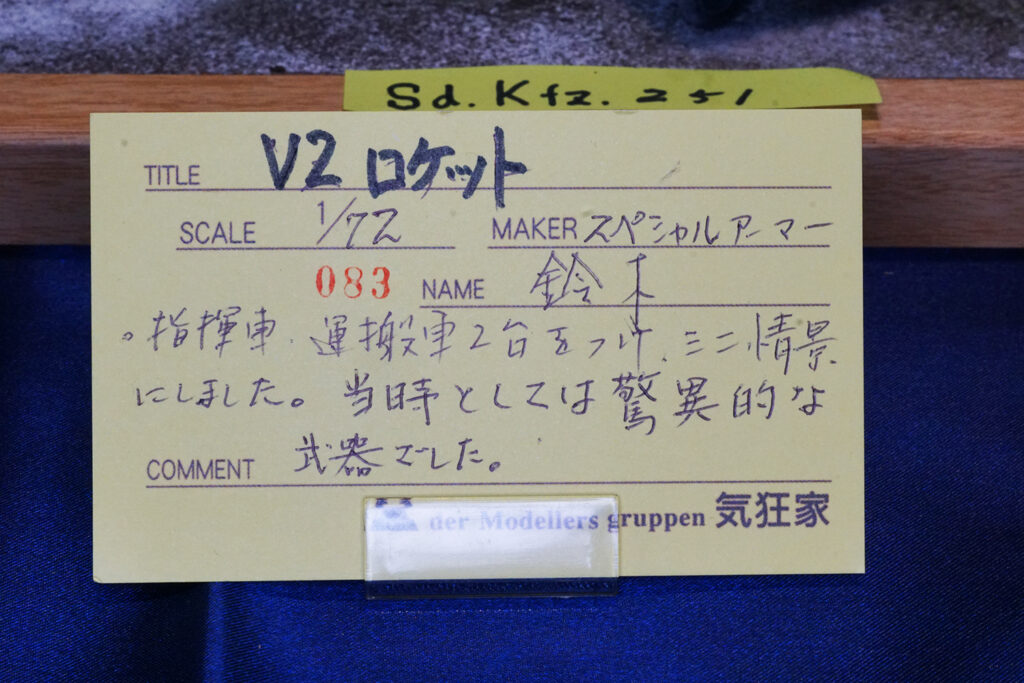 Sd. Kfz. 251
TITLE V2 ロケット
SCALE 1/72 MAKER スペシャルアーマー
083 NAME 鈴木
。指揮車、運搬車2台をつけ、ミニ情景
にしました。当時としては驚異的な
COMMENT 武器でした。
der Modellers gruppen 気狂家